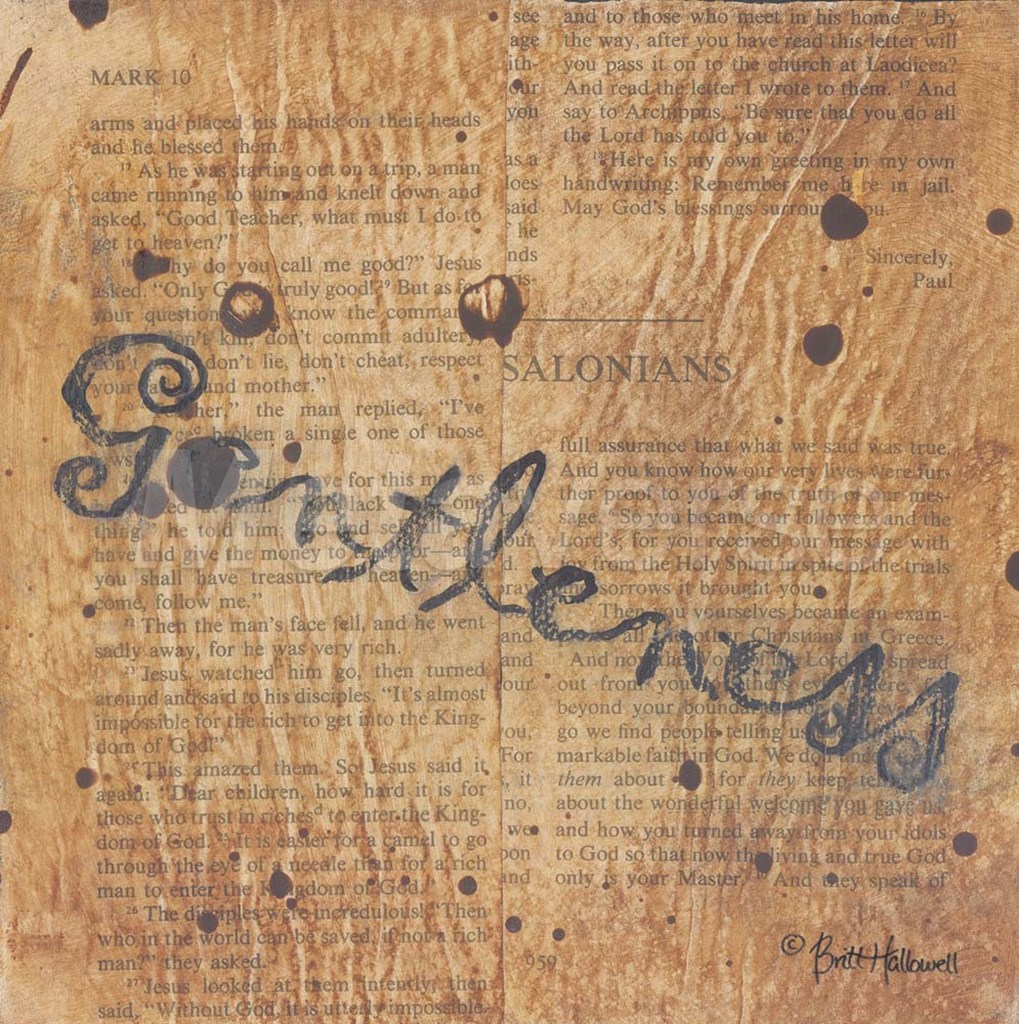 MARK 10
arms and placed his hands on their heads
and he blessed them.
17 As he was starting out on a trip, a man
came running to him and knelt down and
asked, "Good Teacher, what must I do to
get to heaven?"
18 hy do you call me good?" Jesus
asked. "Only G is truly good! 19 But as for
your question know the comman
don't kill, don't commit adultery,
don't don't lie, don't cheat, respect
your and mother."
20 her," the man replied, "I've
broken a single one of those
ve for this man as
lack one
thing," he told him; and sell all
have and give the money to the poor—and
you shall have treasure in heaven—and
come, follow me."
22 Then the man's face fell, and he went
sadly away, for he was very rich.
23 Jesus watched him go, then turned
around and said to his disciples, "It's almost
impossible for the rich to get into the King-
dom of God!"
This amazed them. So Jesus said it
again: "Dear children, how hard it is for
those who trust in riches d to enter the King-
dom of God. It is easier for a camel to go
through the eye of a needle than for a rich
man to enter the Kingdom of God.
26 The disciples were incredulous! "Then
who in the world can be saved, if not a rich
man?" they asked.
27 Jesus looked at them intently, then
said, "Without God, it is utterly impossible.
see
age
ith-
our
you
as a
loes
said
he
nds
is-
our
d.
pray
and
and
our
ou,
For
, it
no,
we
pon
and
and to those who meet in his home. 16 By
the way, after you have read this letter will
you pass it on to the church at Laodicea?
And read the letter I wrote to them. 17 And
say to Archippus, "Be sure that you do all
the Lord has told you to."
18 Here is my own greeting in my own
handwriting: Remember me here in jail.
May God's blessings surround you.
Sincerely,
Paul
SALONIANS
full assurance that what we said was true.
And you know how our very lives were fur-
ther proof to you of the truth of our mes-
sage. 6 So you became our followers and the
Lord's; for you received our message with
from the Holy Spirit in spite of the trials
and sorrows it brought you.
Then you yourselves became an exam-
all other Christians in Greece.
And now the Word of the Lord spread
out from you others everywhere,
beyond your boundaries, for wherever
go we find people telling us
markable faith in God. We don't
them about for they keep telling
about the wonderful welcome you gave us,
and how you turned away from your idols
to God so that now the living and true God
only is your Master. 10 And they speak of
959
Gentleness
© Britt Hallowell